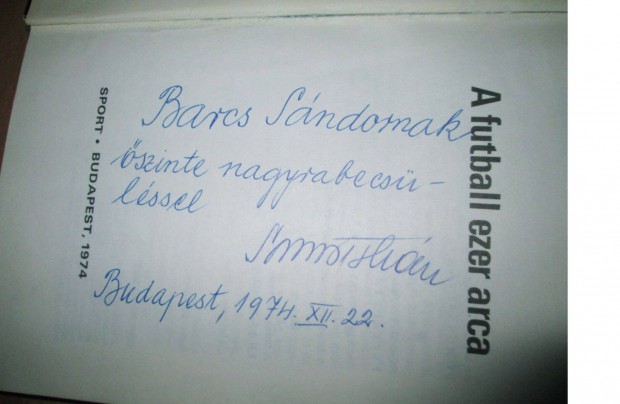 A futball ezer arca
Barcs Sándornak
őszinte nagyrabecsü-
léssel
István
Budapest, 1974. XII. 22.
SPORT • BUDAPEST, 1974